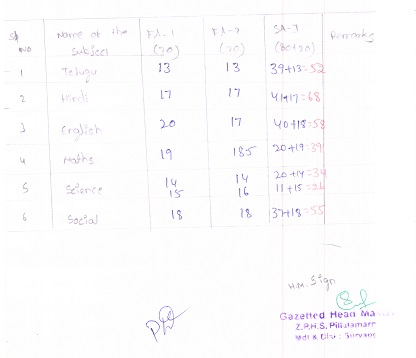 Sl NO Name of the Subject FA-1 (20) FA-2 (20) SA-1 (80+20) Remarks
1 Telugu 13 13 39+13=52
2 Hindi 17 17 =68
3 English 20 17 40+18=58
4 Maths 19 185 20+19=39
5 Science 14 14 20+14=34
15 16 11+15=26
6 Social 18 18 37+18=55
H.M. Sign
Gazetted Head Ma
Z.P.H.S. Pillalamarr
Mdl & Dist : Suryape